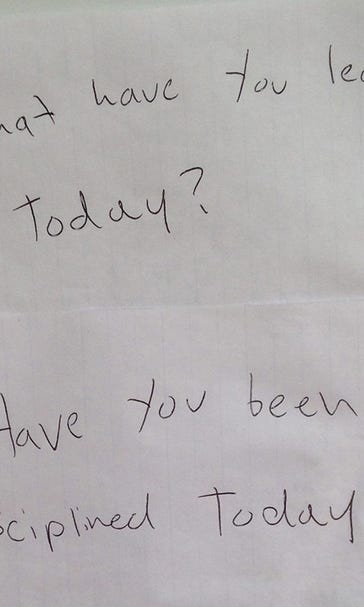 hat have you lea
Today?
Have you been
sciplined Today